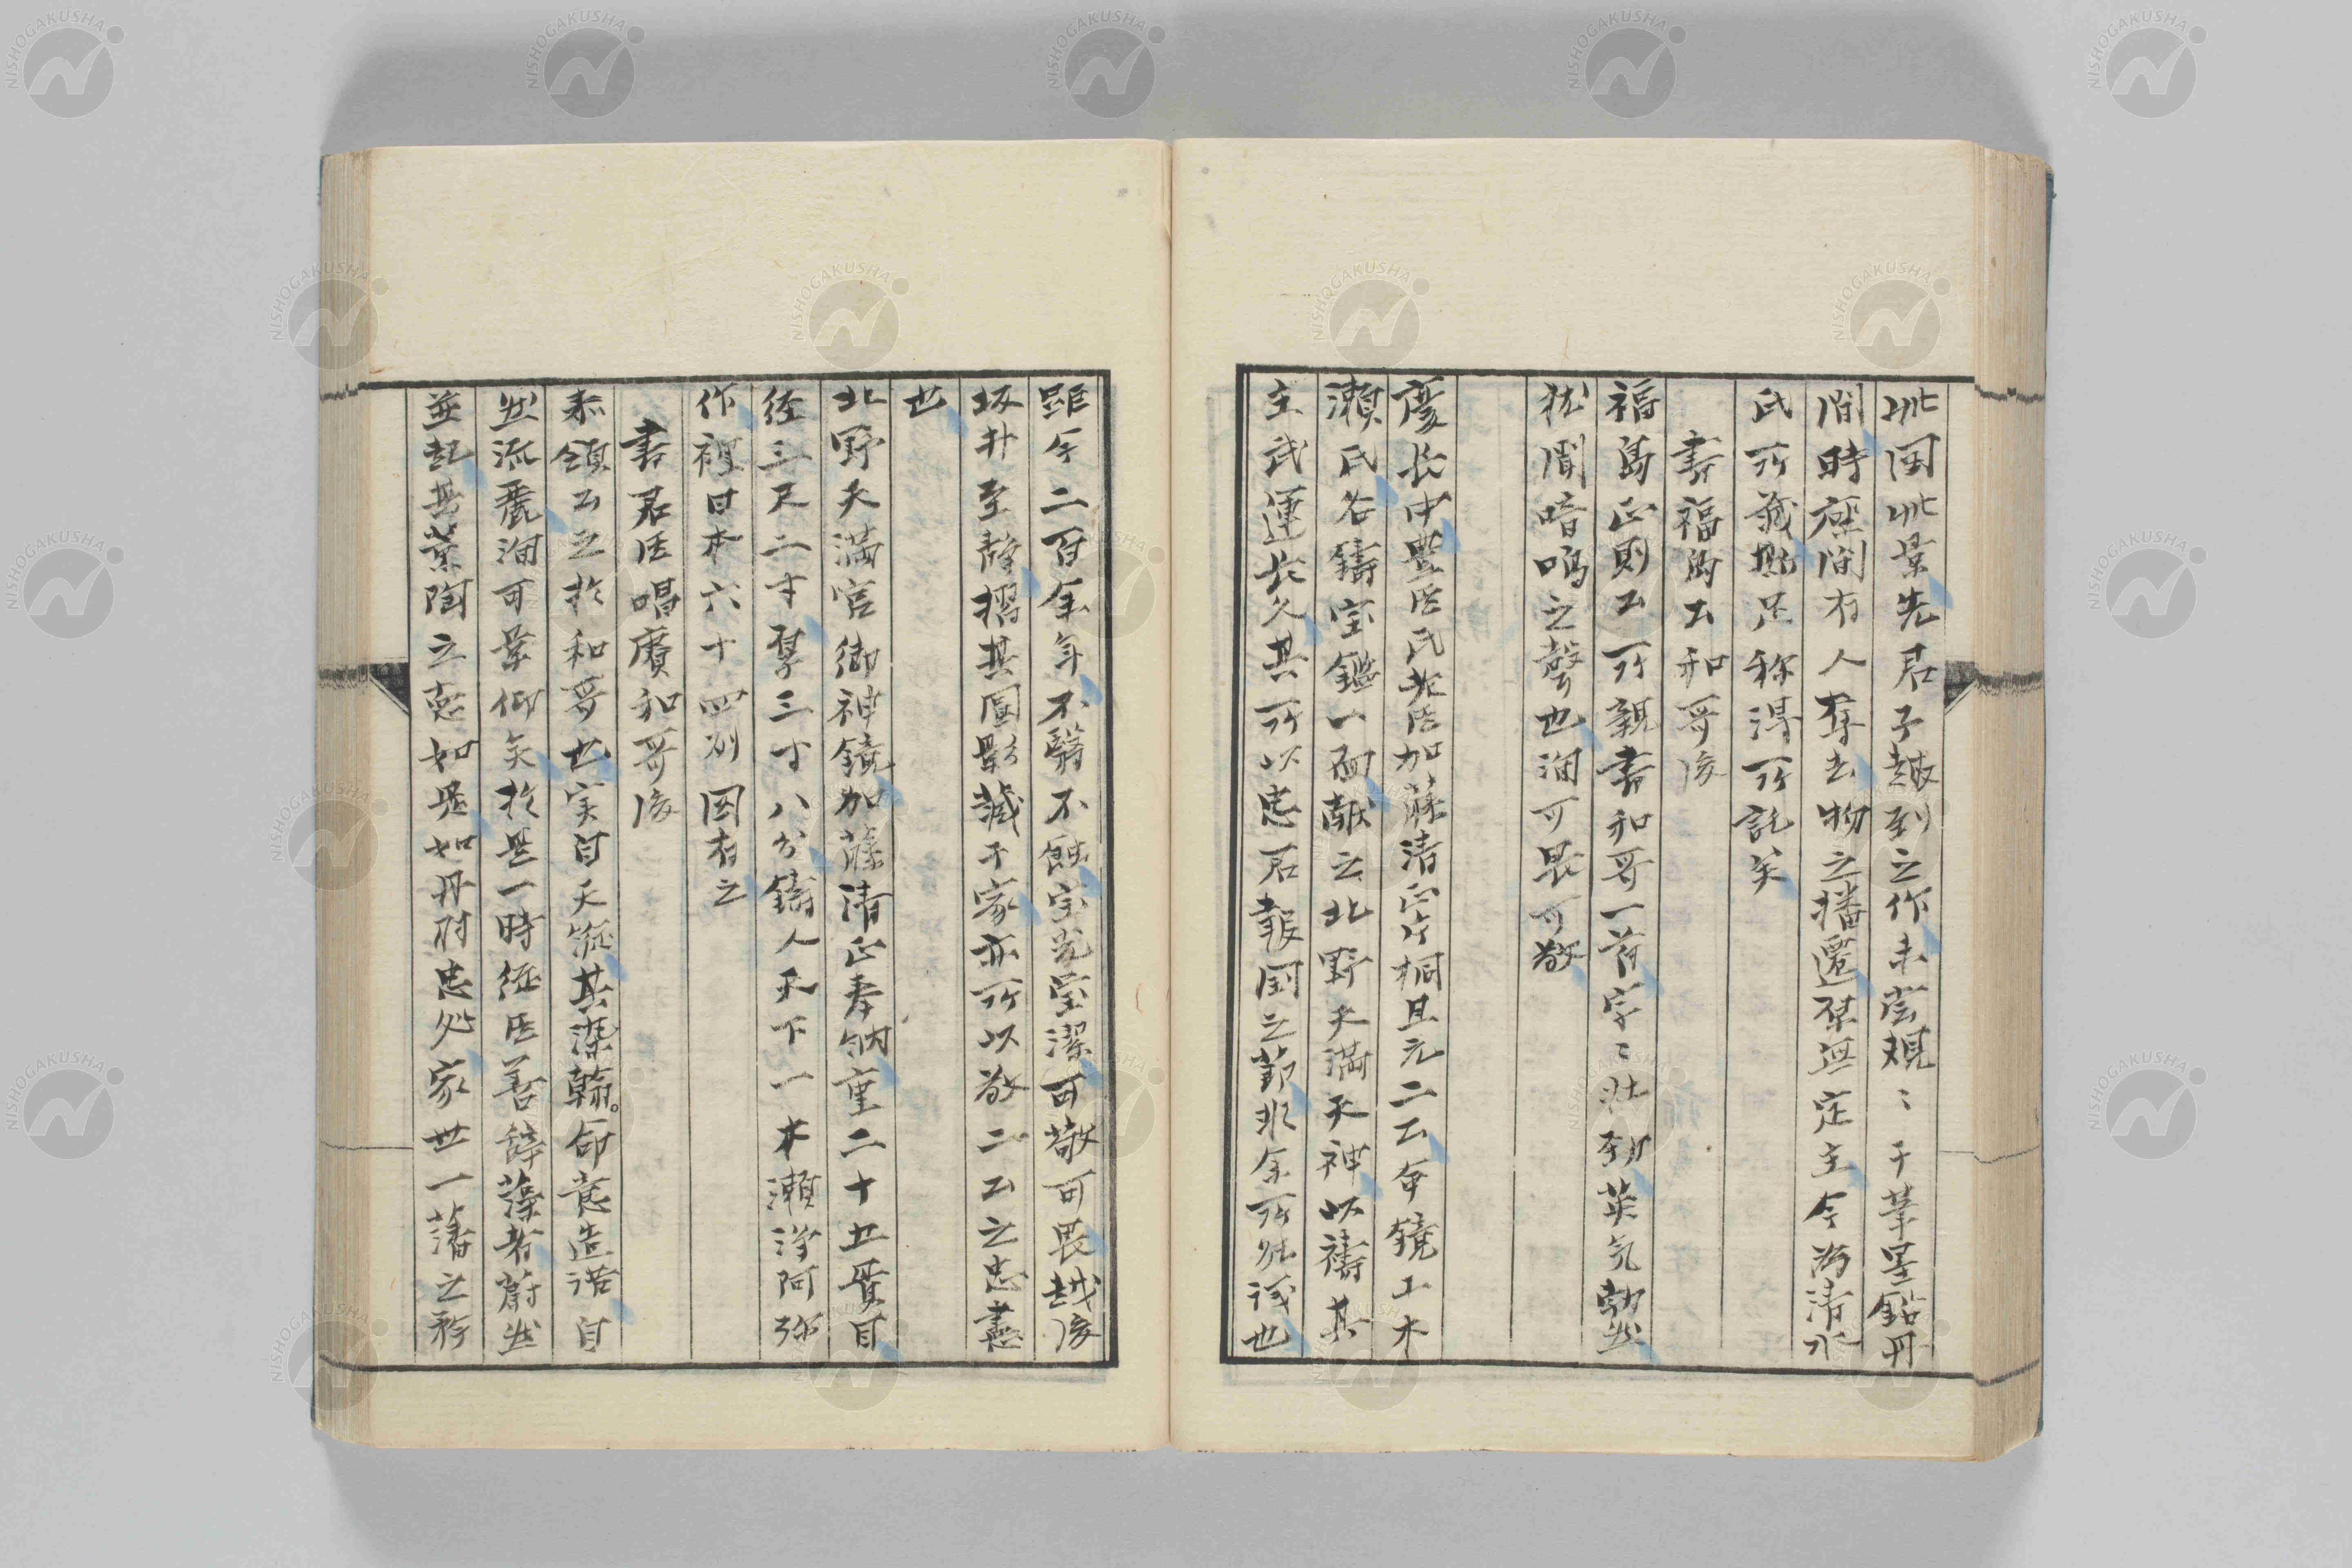 此図此景先君子越到之作未嘗規〻于筆墨鉛丹
間時座間有人奪去物之播遷某無定主今為清水
氏所蔵㔟足称得所託矣
書福島公和哥後
福島正則公所親書和哥一首字〻壮勁英気勃然
猶聞喑嗚之聲也洵可畏可敬
慶長中豊臣氏老臣加藤清正片桐且元二公命鏡工木
瀬氏各鋳宝鑑一面献之北野天満天神以祷其
主武運長久其所以忠君報国之節非余所能議也
雖今二百余年不翳不蝕宝光瑩潔可敬可畏越後
坂井至静摺其図影蔵于家亦所以敬二公之忠藎
也
北野天満宮御神鏡加藤清正奉納重二十五貫目
径三尺二寸厚三寸八分鋳人天下一木瀬浄阿弥
作裡日本六十四州図有之
書君臣唱賡和哥後
泰領公之於和哥也実自天縦其染翰命意造語自
然流麗洵可景仰矣於是一時侄臣善辞藻者蔚然
並起其薫陶之恵如是如丹府忠処家世一藩之称